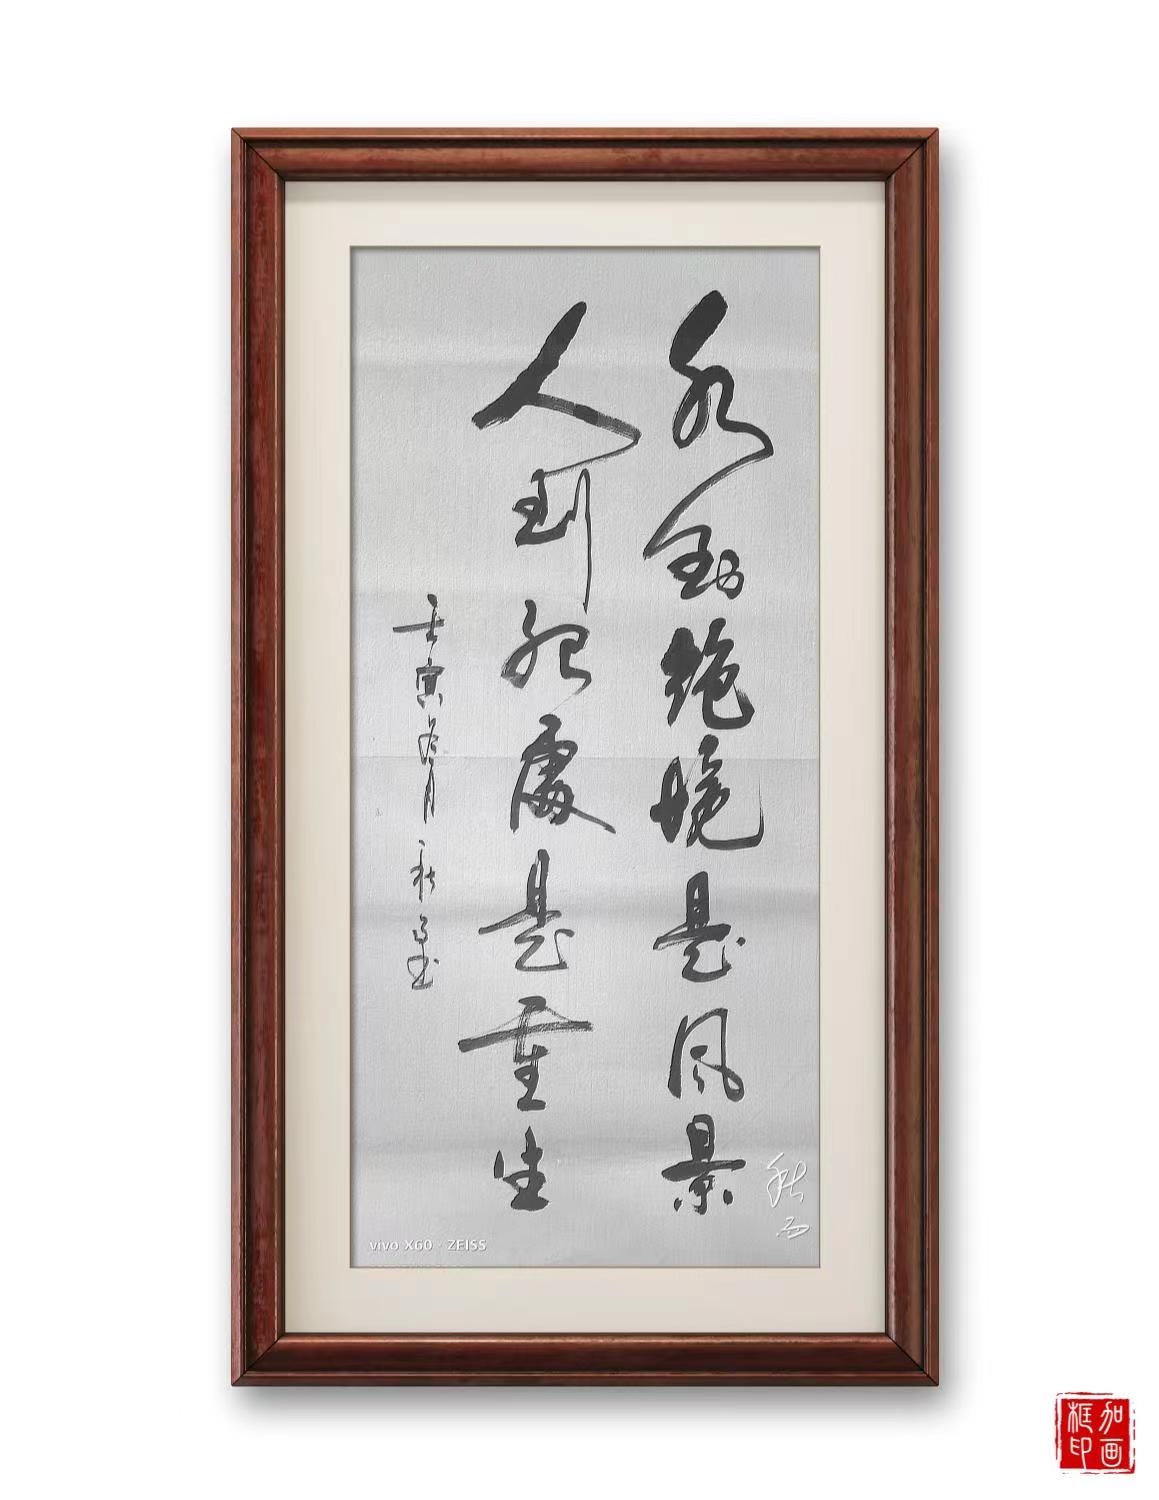 水到绝境是风景
人到绝處是重生
壬寅冬月 秋
秋
vivo X60 · ZEISS
加画
框印